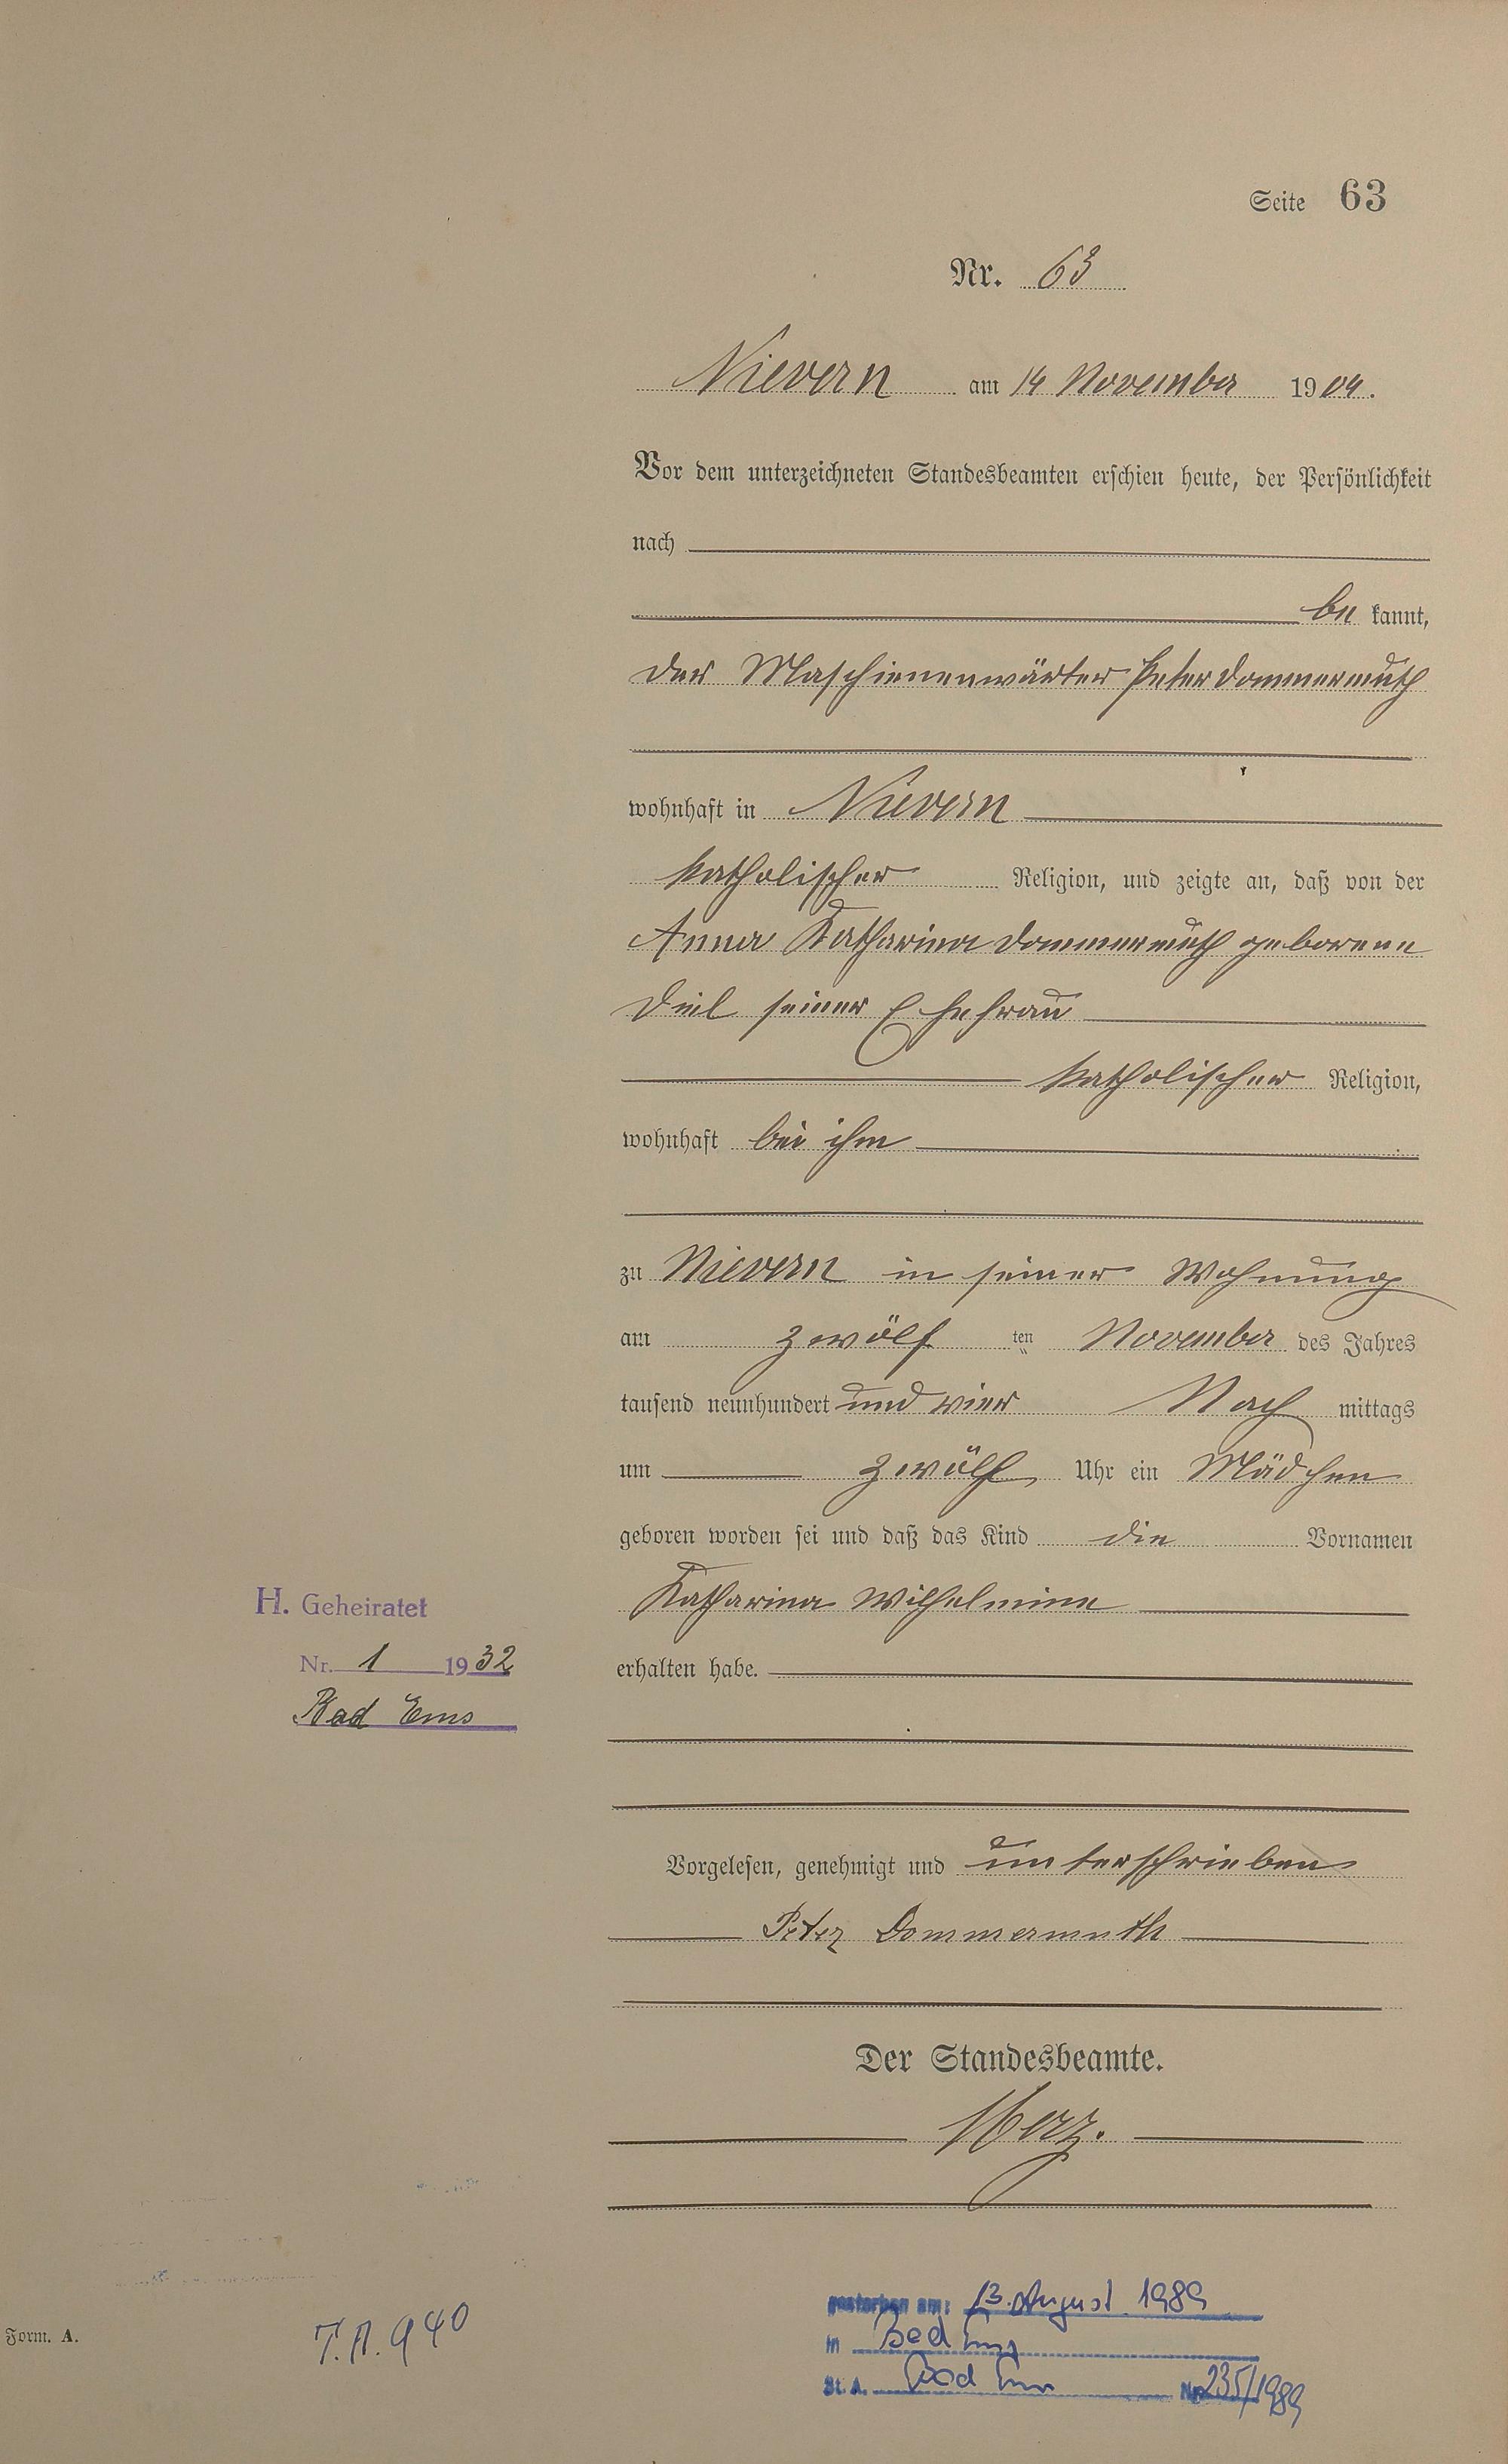 Seite 63
Nr. 63
Nievern am 14 November 1904.
Vor dem unterzeichneten Standesbeamten erschien heute, der Persönlichkeit
nach
be kannt,
der Maschienenwärter Peter Dommermuth
wohnhaft in Nievern
katholischer Religion, und zeigte an, daß von der
Anna Katharina Dommermuth geborene
Diel seiner Ehefrau
katholischer Religion,
wohnhaft bei ihm
zu Nievern in seiner Wohnung
am zwölf ten November des Jahres
tausend neunhundert und vier Nach mittags
um zwölf Uhr ein Mädchen
geboren worden sei und daß das Kind die Vornamen
Katharina Wilhelmine
erhalten habe.
H. Geheiratet
Nr. 1 1932
Bad Ems
Vorgelesen, genehmigt und unterschrieben
Peter Dommermuth
Der Standesbeamte.
Merz.
gestorben am: 13. August 1989
in Bad Ems
St. A. Bad Ems Nr. 235/1989
Form. A.
T.A. 940